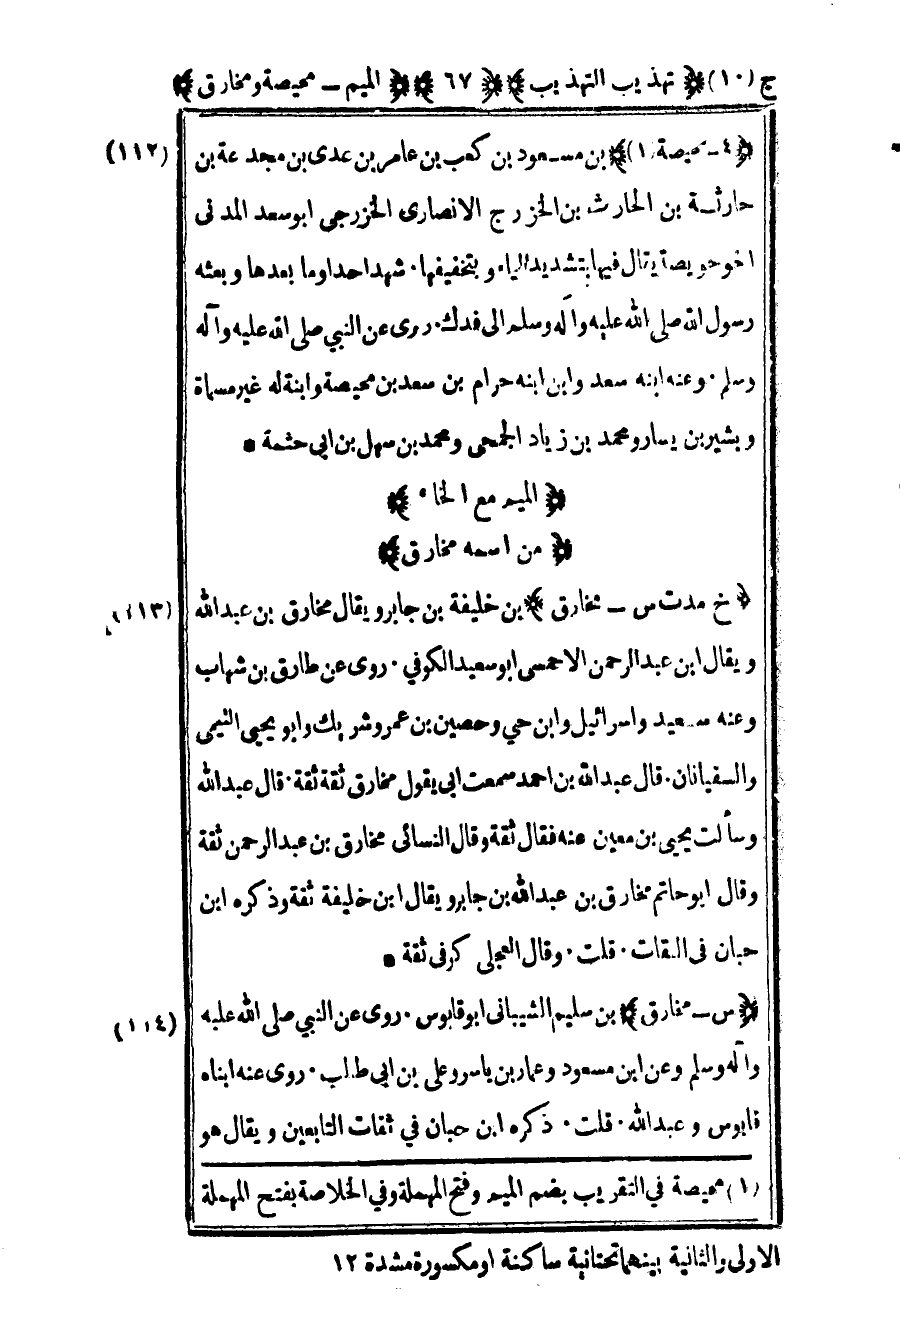 ج (١٠) ﴿ تهذيب التهذيب ﴾ ﴿ ٦٧ ﴾ ﴿ الميم ــ محيصة ومخارق ﴾
(١١٢)
﴿ ٤ ــ محيصة (١) ﴾ بن مسعود بن كعب بن عامر بن عدى بن مجدعة بن
حارثة بن الحارث بن الخزرج الانصارى الخزرجى ابوسعد المدنى
اخوحويصة يقال فيها بتشديد الياء و بتخفيفها ٠ شهد احدا وما بعدها و بعثه
رسول الله صلى الله عليه وآله وسلم الى فدك ٠ روى عن النبي صلى الله عليه وآله
وسلم ٠ وعنه ابنه سعد وابن ابنه حرام بن سعد بن محيصة وابنة له غير مسماة
و بشير بن يسار ومحمد بن زياد الجمحى ومحمد بن سهل بن ابى حثمة •
﴿ الميم مع الخاء ﴾
﴿ من اسمه مخارق ﴾
(١١٣)
﴿ خ مد ت س ــ مخارق ﴾ بن خليفة بن جابر و يقال مخارق بن عبدالله
و يقال ابن عبدالرحمن الاحمسى ابوسعيد الكوفي ٠ روى عن طارق بن شهاب
وعنه سعيد واسرائيل وابن حي وحصين بن عمر وشريك وابو يحيى التيمى
والسفيانان ٠ قال عبدالله بن احمد سمعت ابى يقول مخارق ثقة ثقة ٠ قال عبدالله
وسألت يحيى بن معين عنه فقال ثقة وقال النسائى مخارق بن عبدالرحمن ثقة
وقال ابوحاتم مخارق بن عبدالله بن جابر و يقال ابن خليفة ثقة وذكره ابن
حبان فى الثقات ٠ قلت ٠ وقال العجلى كوفى ثقة •
(١١٤)
﴿ س ــ مخارق ﴾ بن سليم الشيبانى ابوقابوس ٠ روى عن النبي صلى الله عليه
وآله وسلم وعن ابن مسعود وعمار بن ياسر وعلى بن ابى طالب ٠ روى عنه ابناه
قابوس و عبدالله ٠ قلت ٠ ذكره ابن حبان في ثقات التابعين و يقال هو
(١) محيصة في التقريب بضم الميم وفتح المهملة وفي الخلاصة بفتح المهملة
الاولى والثانية بينهما تحتانية ساكنة او مكسورة مشدة ١٢